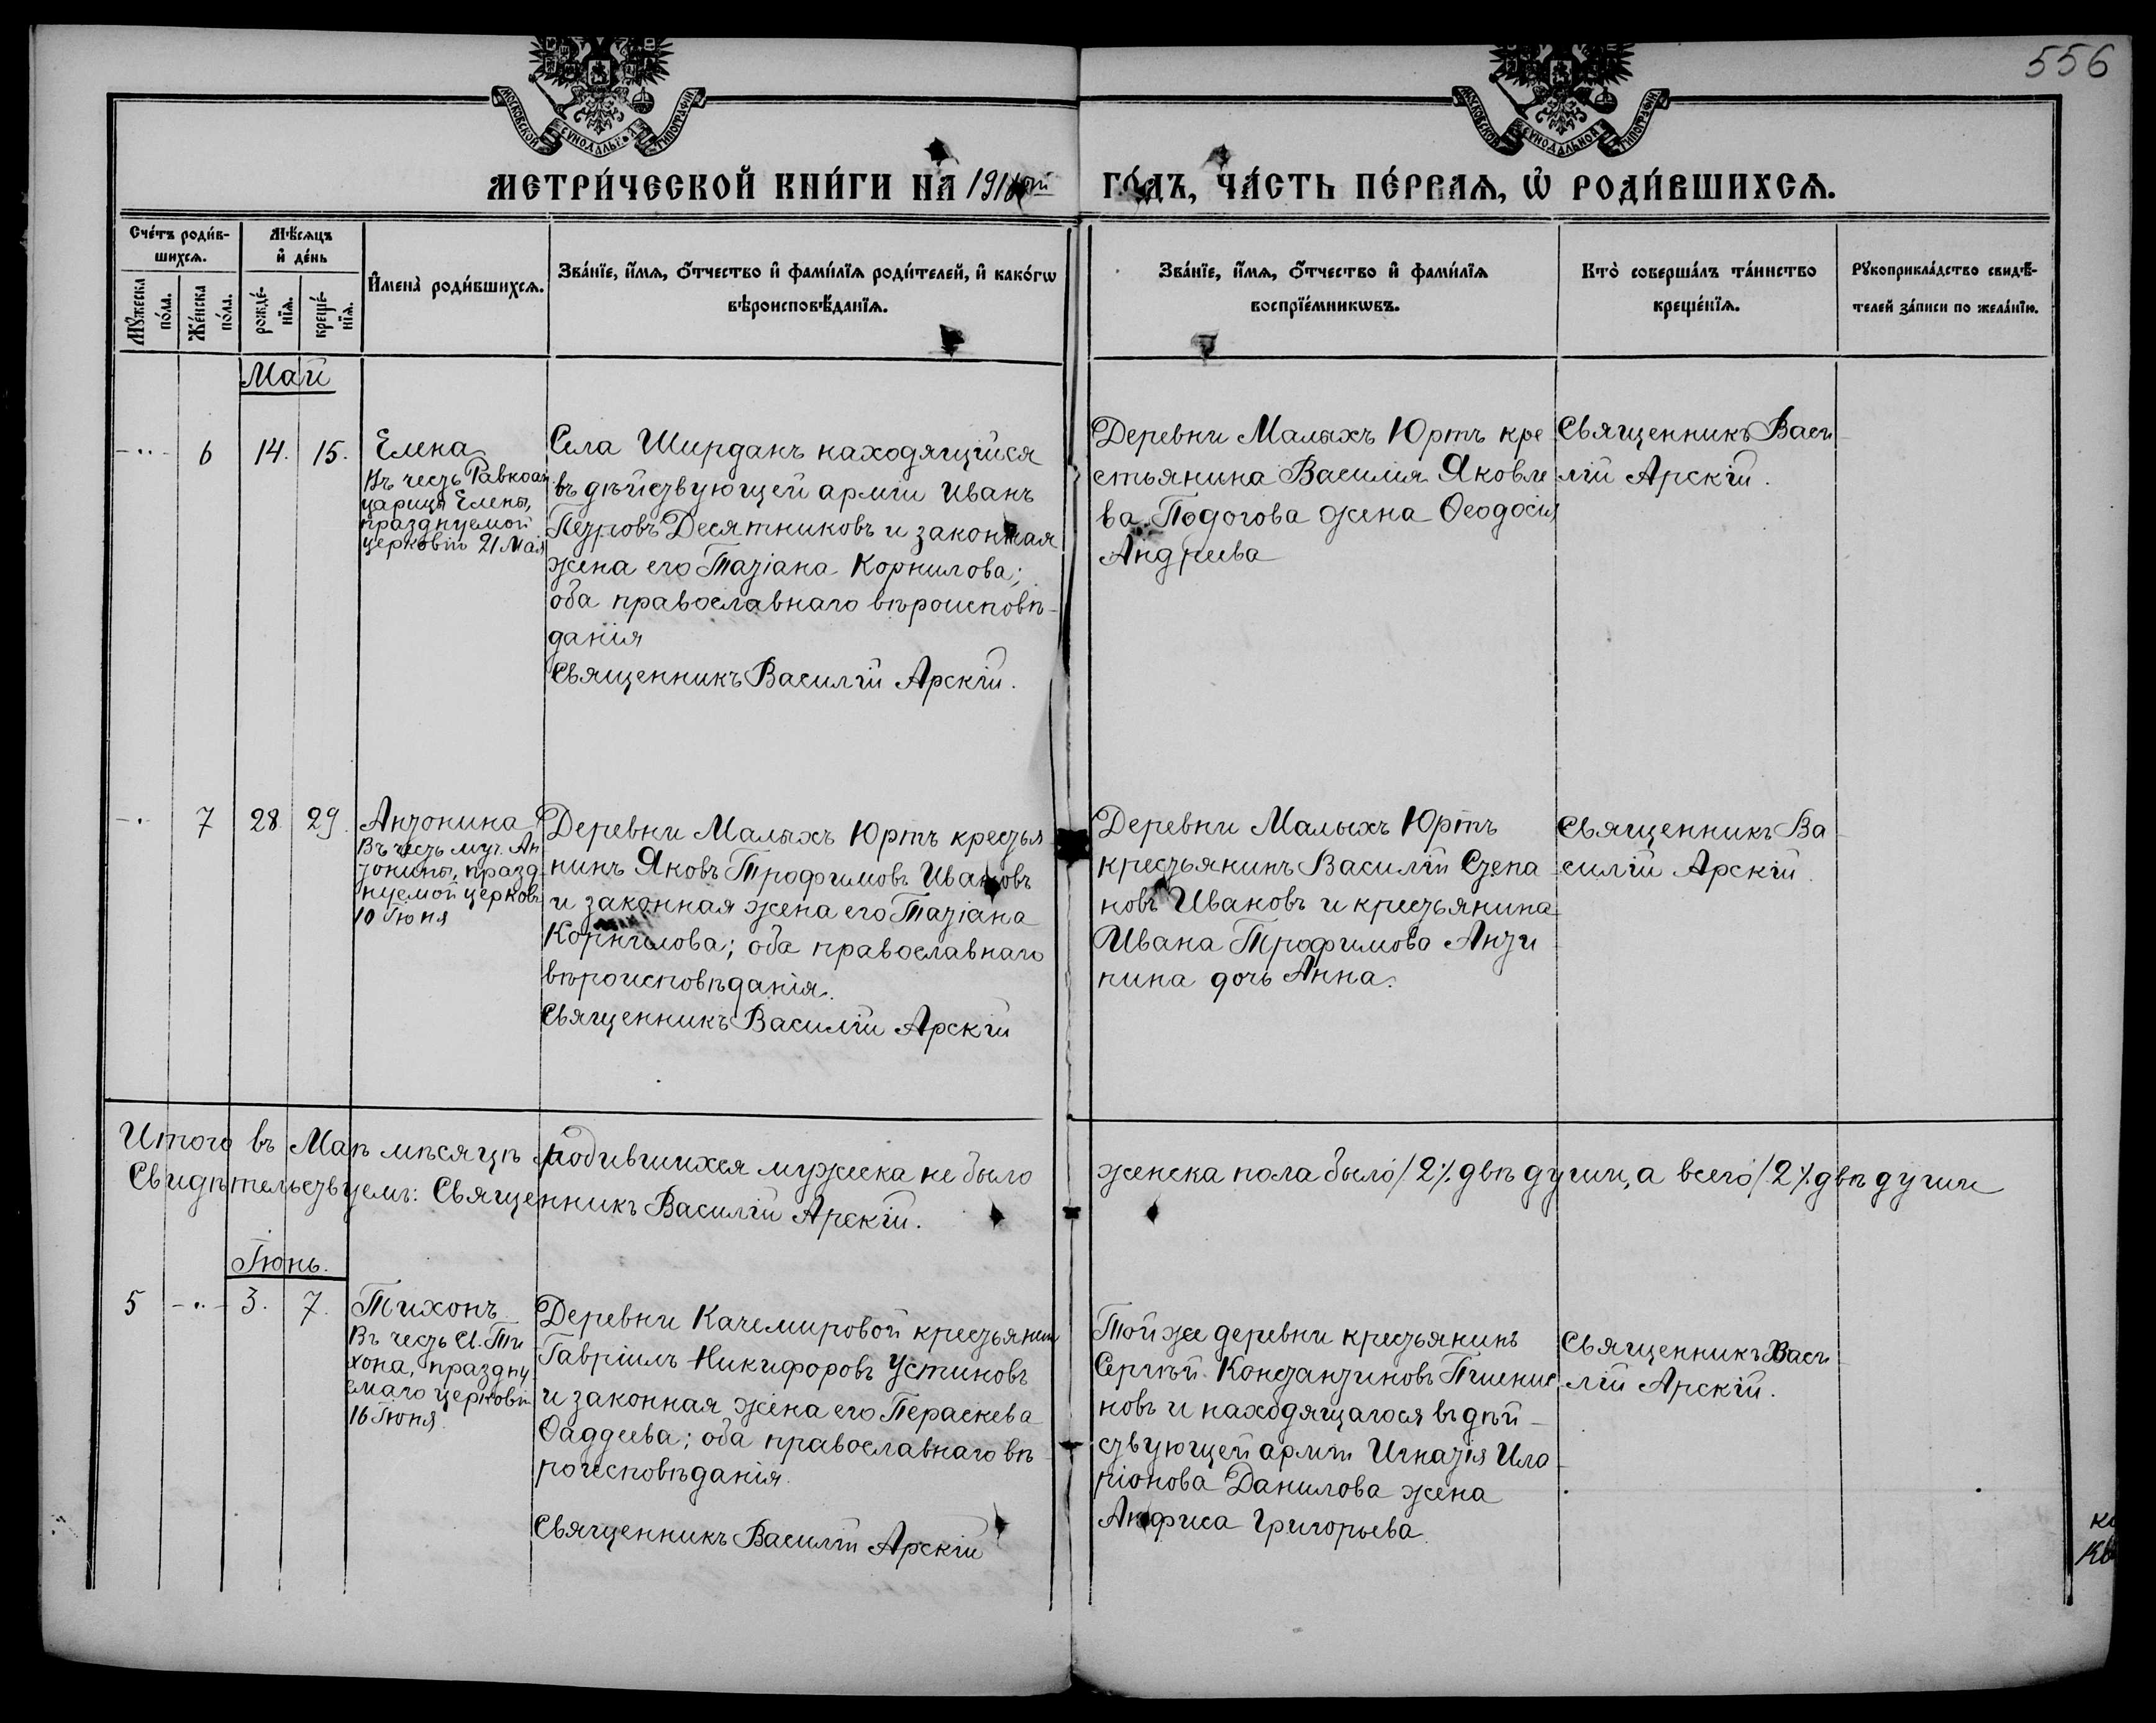 556
МОСКОВСКОЙ СѴНОДАЛЬНОЙ ТИПОГРАФІИ
МОСКОВСКОЙ СѴНОДАЛЬНОЙ ТИПОГРАФІИ
МЕТРИ́ЧЕСКОЙ КНИ́ГИ НА̀ 1916ый ГО́ДЪ, ЧА́СТЬ ПЕ́РВАѦ, Ѡ҆ РОДИ́ВШИХСѦ.
Сче́тъ роди́в-
шихсѧ.
Мꙋ́жеска по́ла.
Же́нска по́ла.
Мѣ́сяцъ
и҆ де́нь
рожде́-
нїѧ.
креще́-
нїѧ.
И҆мена̀ роди́вшихсѧ.
Зва́нїе, и҆́мѧ, ѻ҆́тчество и҆ фами́лїѧ роди́телей, и҆ како́гѡ
вѣроисповѣ́данїѧ.
Зва́нїе, и҆́мѧ, ѻ҆́тчество и҆ фами́лїѧ
воспрїе́мникѡвъ.
Кто̀ соверша́лъ та́инство
креще́нїѧ.
Рꙋкоприкла́дство свидѣ́-
телей за́писи по жела́нїю.
Май
6 14. 15.
Елена
Въ честь Равноап
царицы Елены,
празднуемой
церковію 21 Мая
Села Ширданъ находящійся
въ дѣйствующей арміи Иванъ
Петровъ Десятниковъ и законная
жена его Татіана Корнилова;
оба православнаго вѣроисповѣ-
данія
Священникъ Василій Арскій.
Деревни Малыхъ Юртъ кре
стьянина Василія Яковле
ва Подогова жена Ѳеодосія
Андреева
Священникъ Васи
лій Арскій.
7 28. 29.
Антонина
Въ честь муч. Ан
тонины, празд
нуемой церковію
10 Іюня
Деревни Малыхъ Юртъ крестья
нинъ Яковъ Трофимовъ Ивановъ
и законная жена его Татіана
Корнилова; оба православнаго
вѣроисповѣданія.
Священникъ Василій Арскій
Деревни Малыхъ Юртъ
крестьянинъ Василій Степа
новъ Ивановъ и крестьянина
Ивана Трофимова Анти
пина дочь Анна.
Священникъ Ва
силій Арскій.
Итого въ Маѣ мѣсяцѣ родившихся мужеска не было женска пола было /2/. двѣ души, а всего /2/. двѣ души
Свидѣтельствуемъ: Священникъ Василій Арскій.
Іюнь.
5 3. 7.
Тихонъ
Въ честь Св. Ти
хона, праздну
емаго церковію
16 Іюня.
Деревни Качемировой крестьянинъ
Гавріилъ Никифоровъ Устиновъ
и законная жена его Пераскева
Ѳаддеева; оба православнаго вѣ
роисповѣданія.
Священникъ Василій Арскій
Той же деревни крестьянинъ
Сергѣй Константиновъ
новъ и находящагося въ дѣй-
ствующей арміи Игнатія Ила
ріонова Данилова жена
Анфиса Григорьева.
Священникъ Васи
лій Арскій.